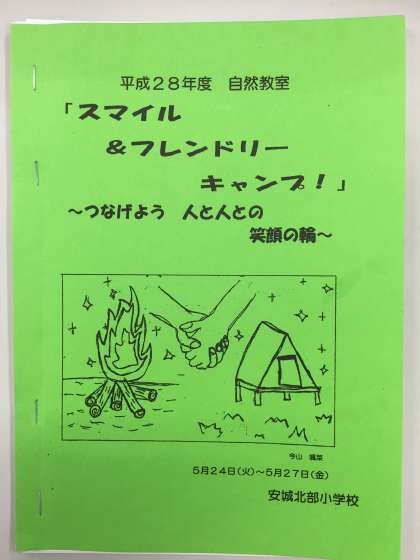 平成28年度　自然教室
「スマイル
＆フレンドリー
キャンプ！」
～つなげよう　人と人との
笑顔の輪～
今山
5月24日(火)～5月27日(金)
安城北部小学校